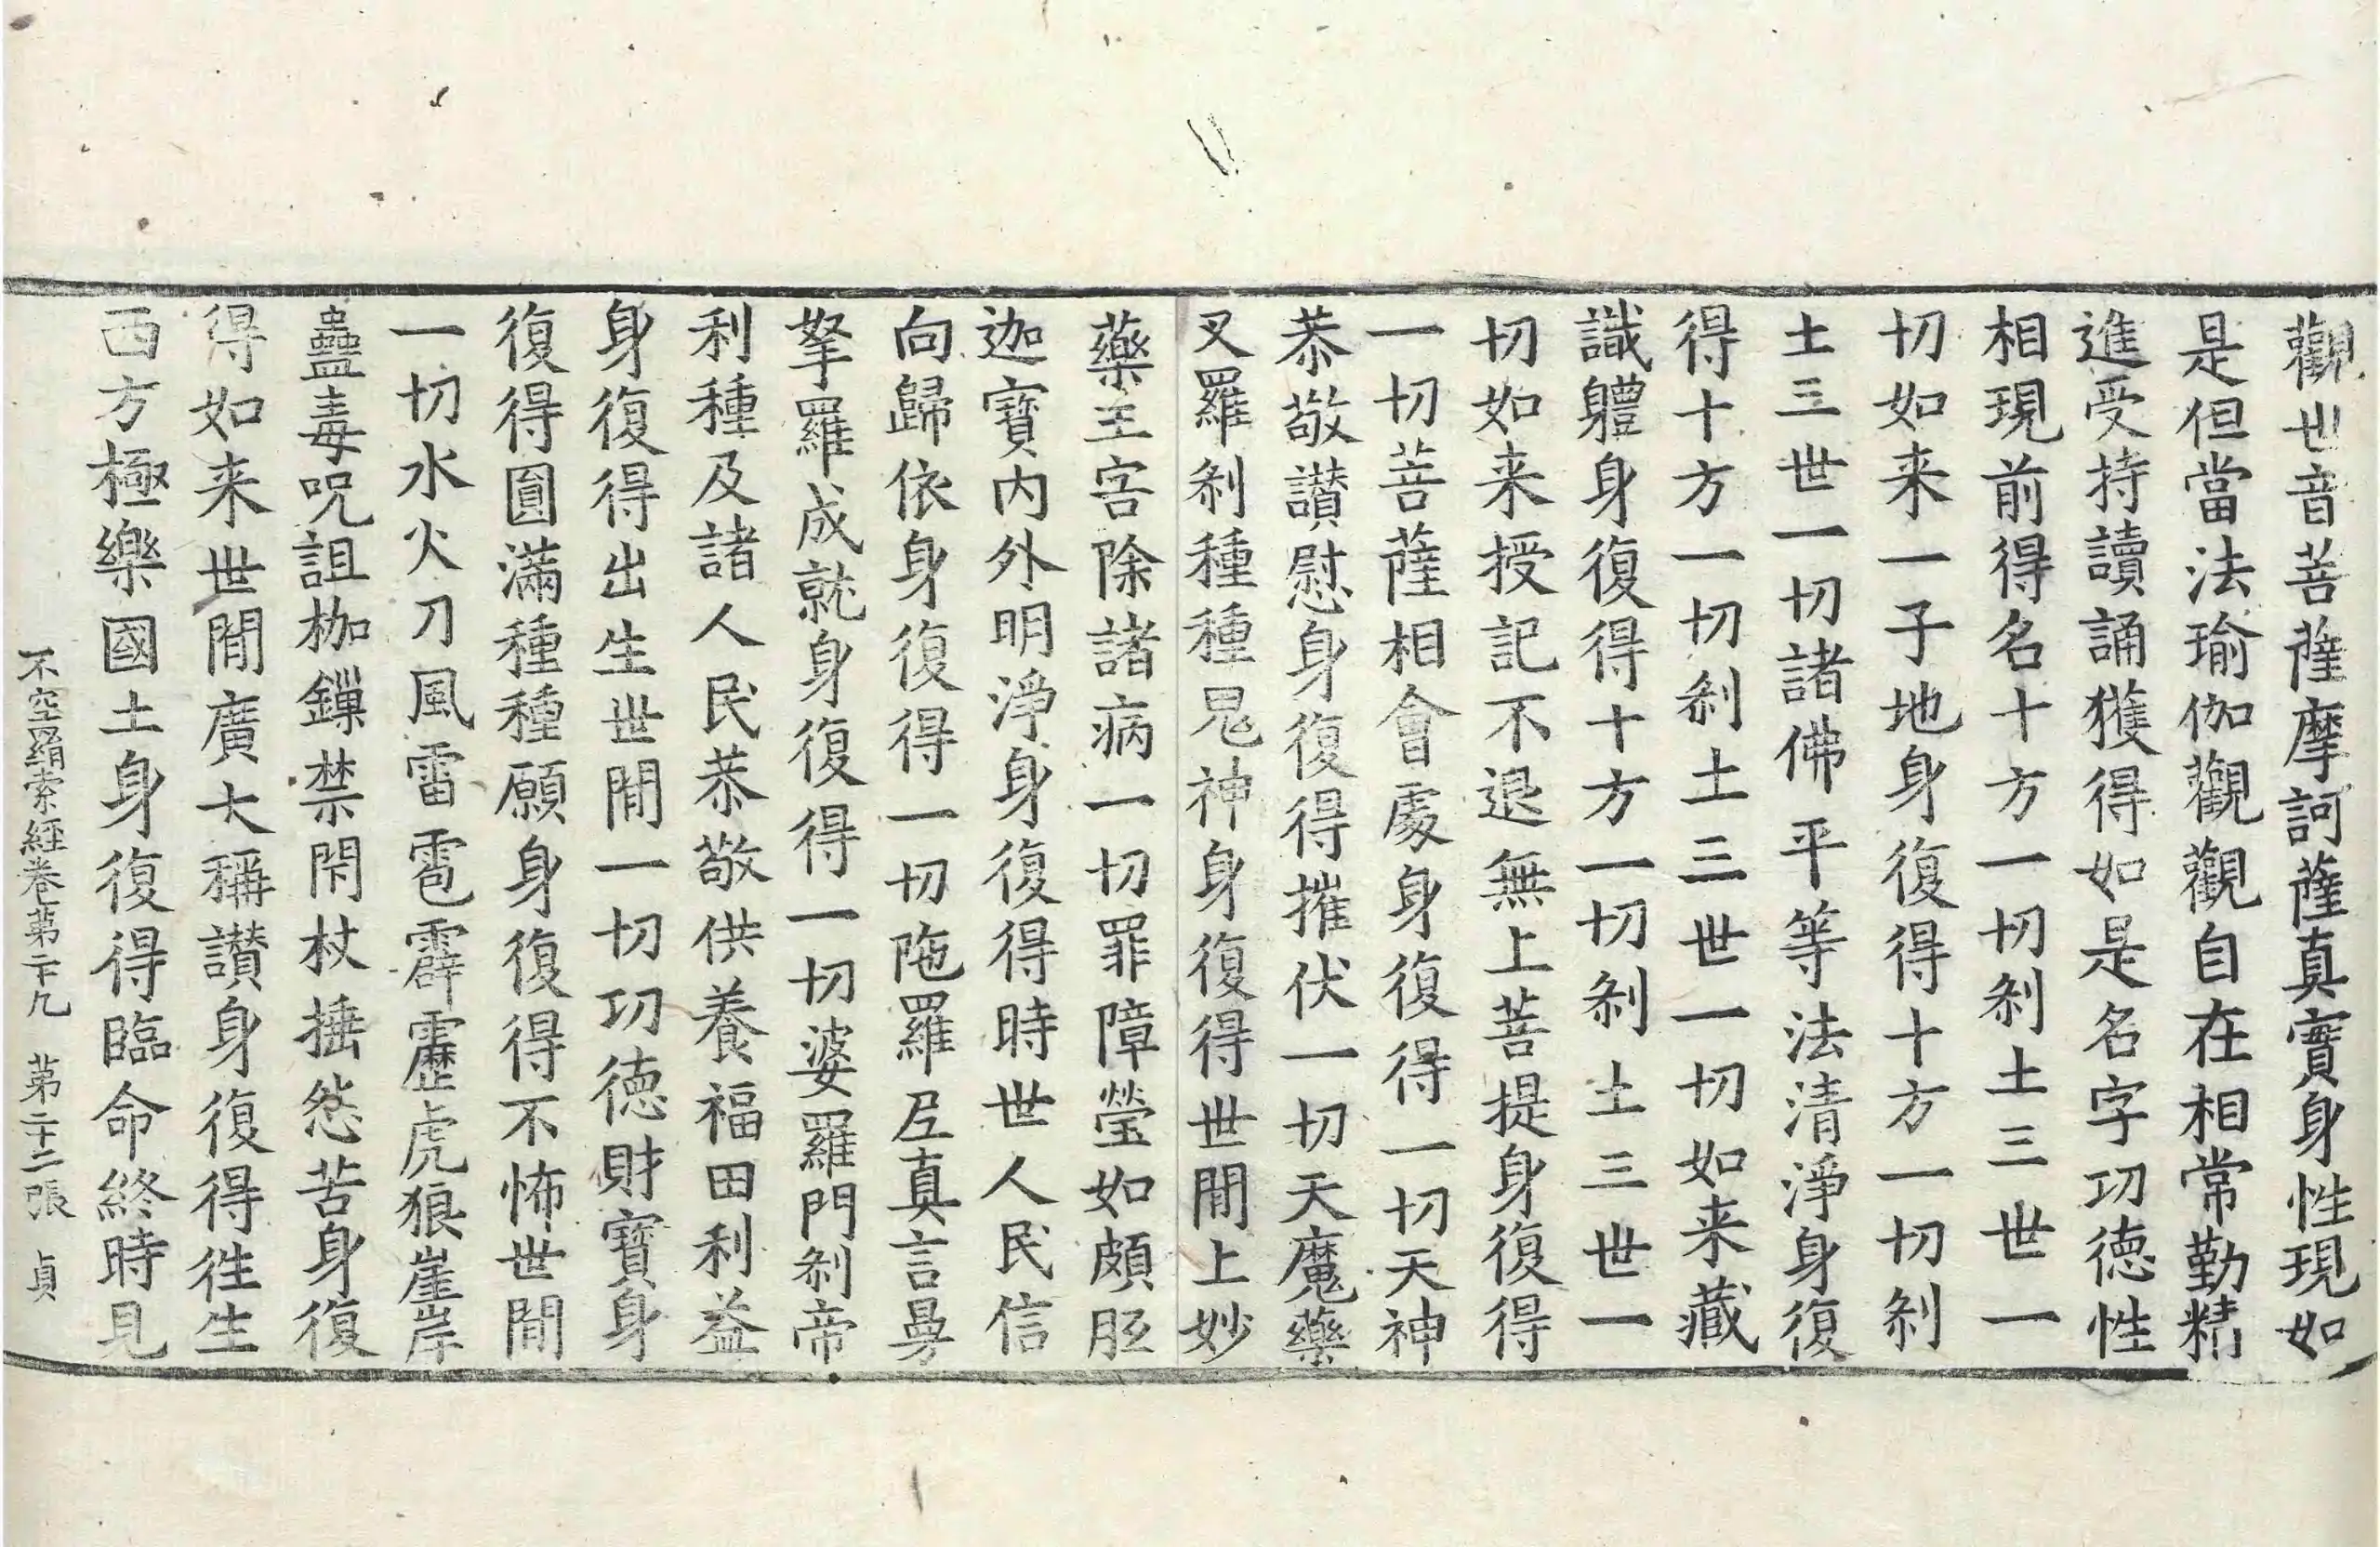 觀世音菩薩摩訶薩真實身性現如
是但當法瑜伽觀觀自在相常勤精
進受持讀誦獲得如是名字功德性
相現前得名十方一切剎土三世一
切如来一子地身復得十方一切剎
土三世一切諸佛平等法清淨身復
得十方一切剎土三世一切如来藏
識軆身復得十方一切剎土三世一
切如来授記不退無上菩提身復得
一切菩薩相會處身復得一切天神
恭敬讃慰身復得摧伏一切天魔藥
叉羅剎種種鬼神身復得世間上妙
藥王害除諸病一切罪障瑩如頗胝
迦寶内外明淨身復得時世人民信
向歸依身復得一切陁羅尼真言曼
拏羅成就身復得一切婆羅門剎帝
利種及諸人民恭敬供養福田利益
身復得出生世間一切功德財寶身
復得圓滿種種願身復得不怖世間
一切水火刀風雷雹霹靂虎狼崖岸
蠱毒呪詛枷鏁禁閇杖捶怨苦身復
得如来世間廣大稱讃身復得往生
西方極樂國土身復得臨命終時見
不空羂索經卷第二十九 第二十二張 貞